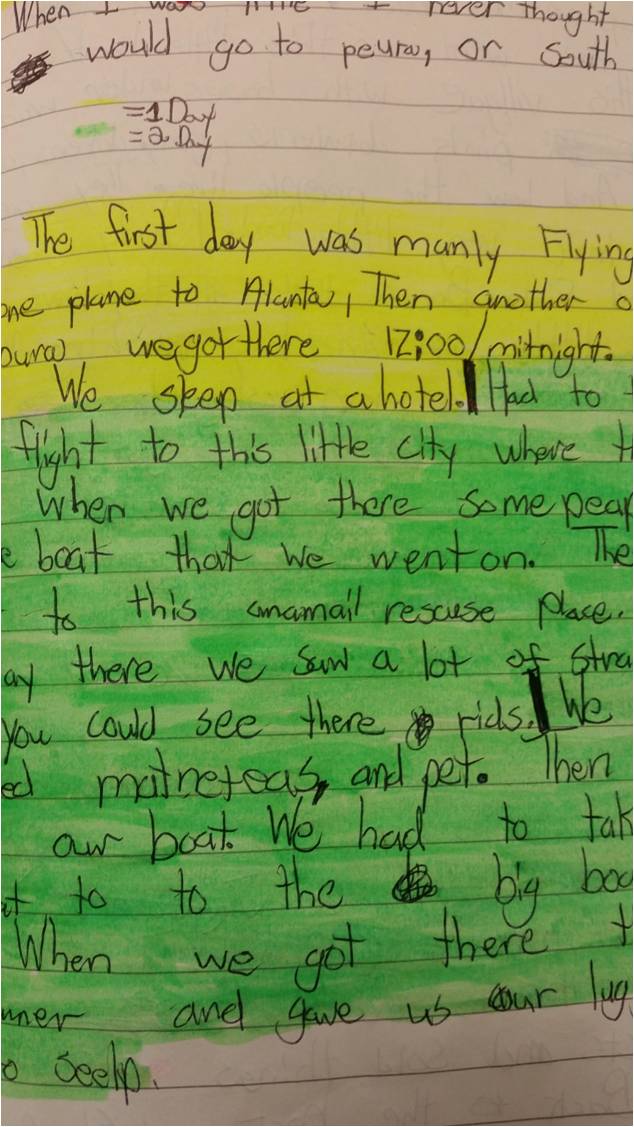 When I was little I never thought
would go to peura, or South
=1 Day
=2 Day
The first day was manly Flying
one plane to Alanta, Then another o
oura) we got there 12:00/mitnight.
We skep at a hotel. Had to t
flight to this little city where th
When we got there some peap
e boat that we went on. The
to this amamail rescuse place.
ay there we saw a lot of stra
you could see there rids. We
ed and pet. Then
our boat. We had to tak
ut to to the big boa
When we got there t
nner and gave us our lug
o seelp.